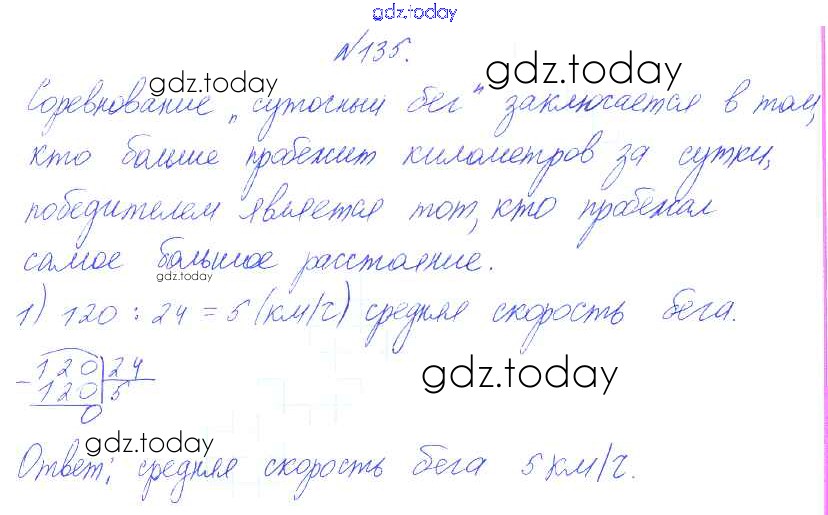 gdz.today
№135.
gdz.today gdz.today
Соревнование „суточный бег" заключается в том,
кто больше пробежит километров за сутки,
победителем является тот, кто пробежал
самое большое расстояние.
gdz.today
1) 120 : 24 = 5 (км/ч) средняя скорость бега.
120 | 24
- 120 | 5
0
gdz.today
gdz.today
Ответ: средняя скорость бега 5 км/ч.